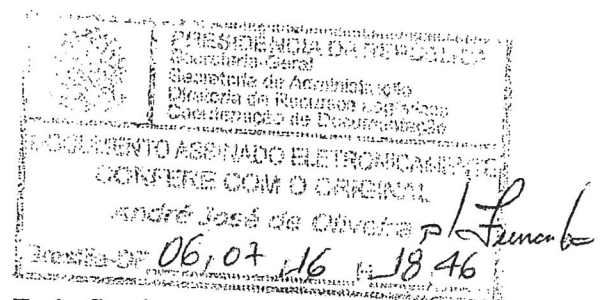 PRESIDÊNCIA DA REPÚBLICA
Secretaria-Geral
Secretaria de Administração
Diretoria de Recursos Logísticos
Coordenação de Documentação
DOCUMENTO ASSINADO ELETRONICAMENTE
CONFERE COM O ORIGINAL
André José de Oliveira p/
Brasília-DF 06, 07, 16 18 46